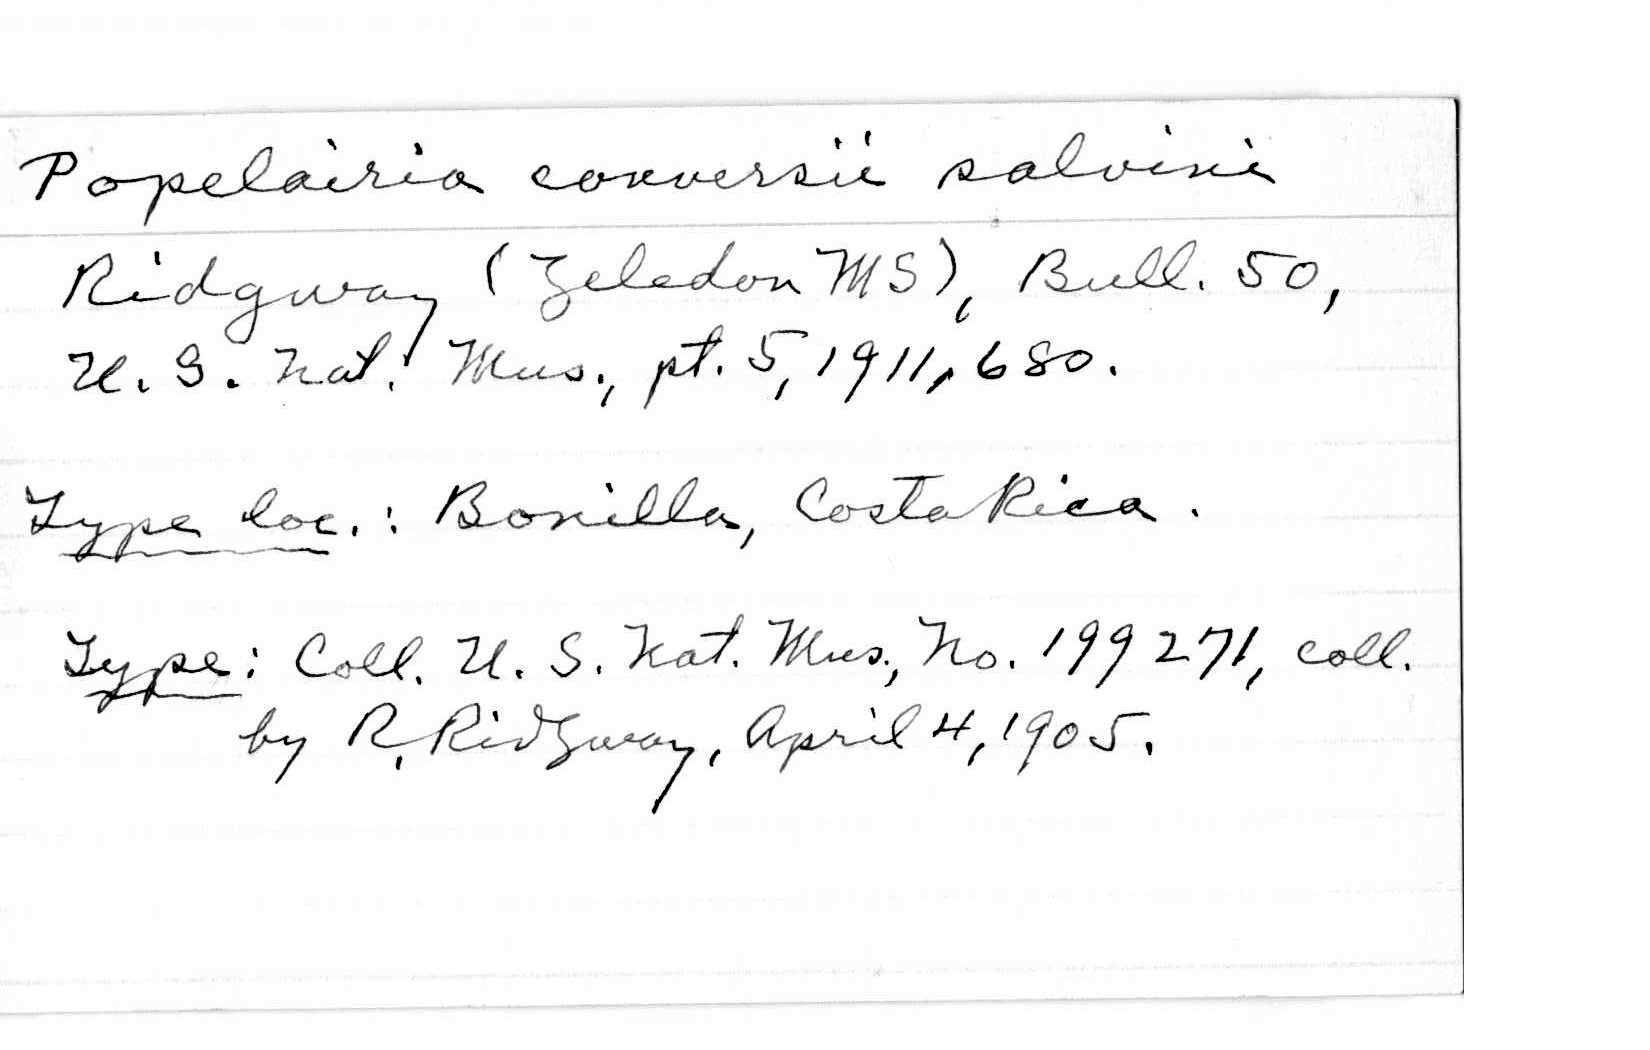 Popelairia conversii salvini
Ridgway (Zeledon MS), Bull. 50,
U. S. Nat. Mus., pt. 5, 1911, 680.
Type loc.: Bonilla, Costa Rica.
Type: Coll. U. S. Nat. Mus., No. 199271, coll.
by R. Ridgway, April 4, 1905.